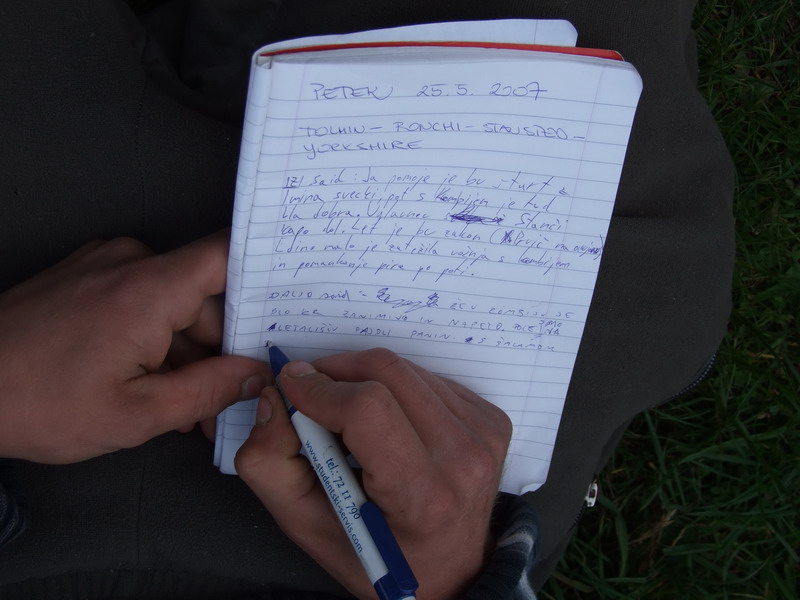 PETEK 25.5.2007
TOLMIN - RONCHI - STANSTED -
YORKSHIRE
IZI said: Ja pomoje je bu šturt s
mina svecki, pot s kombijem je tud
bla dobra. Uglavnem Slanči
kapo dol. Let je bu zakon (Prvič na
Edino malo je zatežila vožnja s kombijem
in pomankanje pira po poti.
DAVID said:
BLO KR ZANIMIVO IN NAPETO.
LETALIŠČU PANINI S SALAMOM
tel.: 72 11 790
www.studentski-servis.com